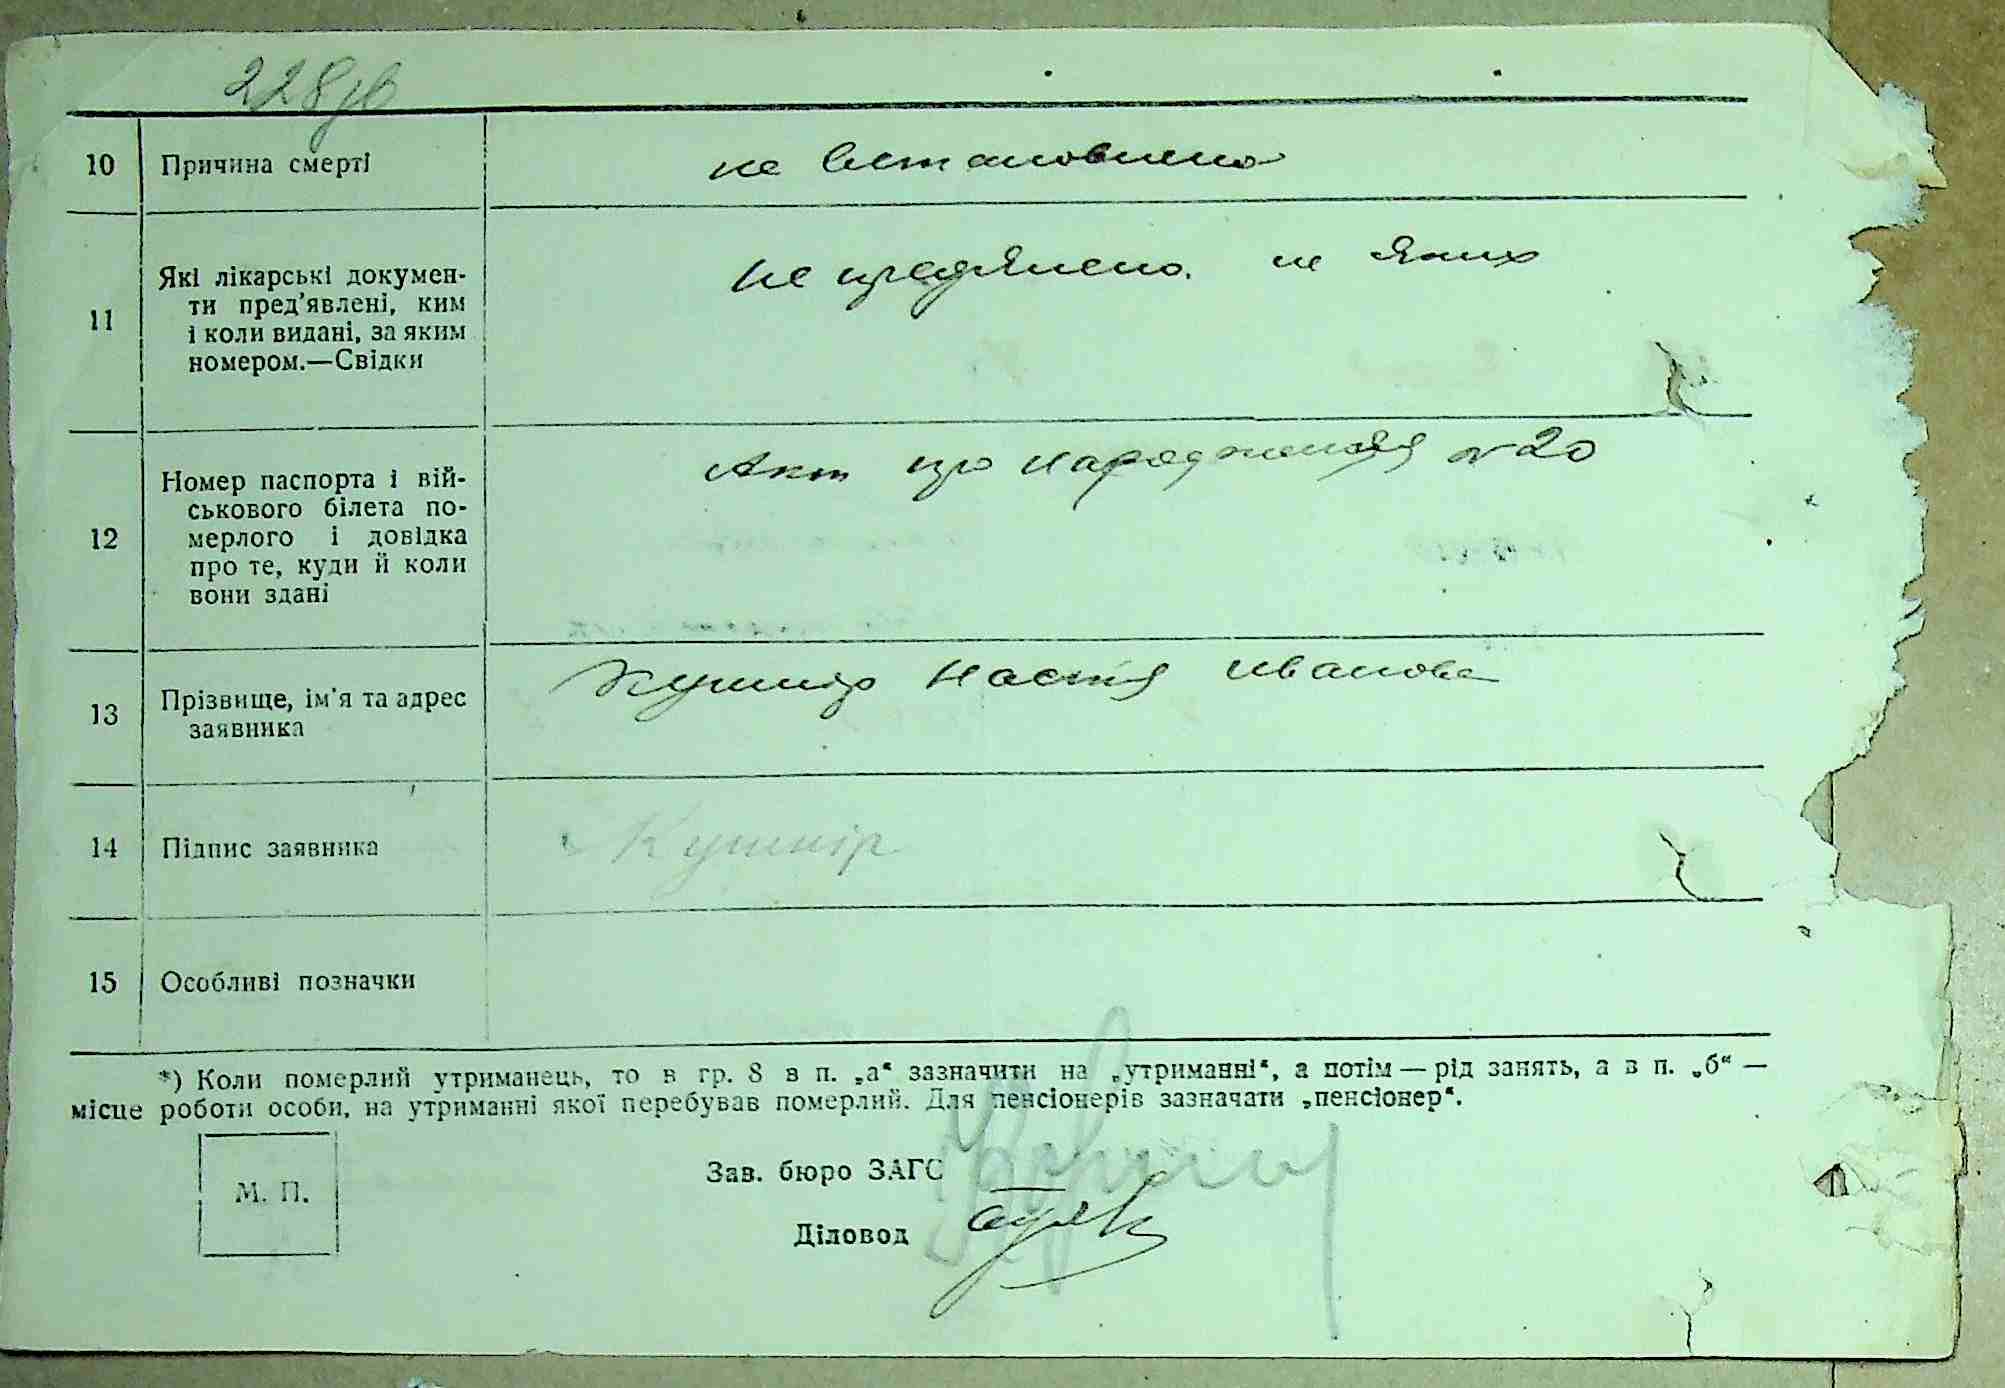 228 зв
10 Причина смерті не встановлено
11 Які лікарські докумен-
ти пред'явлені, ким
і коли видані, за яким
номером.—Свідки
не предявлено. не яких
12 Номер паспорта і вій-
ськового білета по-
мерлого і довідка
про те, куди й коли
вони здані
Акт про народження № 20
13 Прізвище, ім'я та адрес
заявника
Кушнір Настя Иванова
14 Підпис заявника Кушнір
15 Особливі позначки
*) Коли померлий утриманець, то в гр. 8 в п. „а“ зазначити на „утриманні“, а потім — рід занять, а в п. „б“ —
місце роботи особи, на утриманні якої перебував померлий. Для пенсіонерів зазначати „пенсіонер“.
М. П.
Зав. бюро ЗАГС
Діловод